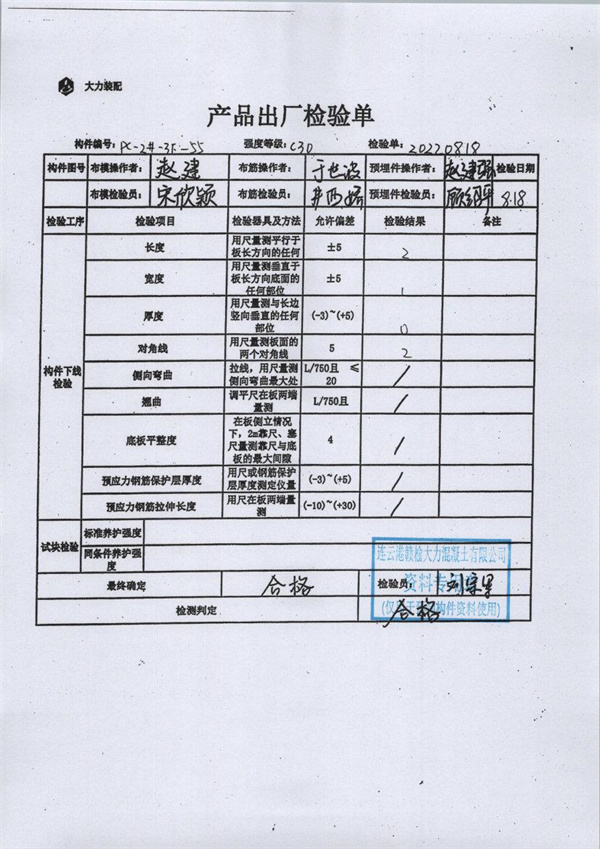 大力装配
产品出厂检验单
构件编号: PC-2#-3F-55 强度等级: C30 检验单: 20220818
构件图号 布模操作者: 赵建 布筋操作者: 于世波 预埋件操作者: 赵建 检验日期
布模检验员: 宋欣颖 布筋检验员: 预埋件检验员: 8.18
检验工序 检验项目 检验器具及方法 允许偏差 检验结果 备注
构件下线检验
长度 用尺量测平行于板长方向的任何 ±5 2
宽度 用尺量测垂直于板长方向底面的任何部位 ±5 1
厚度 用尺量测与长边竖向垂直的任何部位 (-3)~(+5) 0
对角线 用尺量测板面的两个对角线 5 2
侧向弯曲 拉线，用尺量测侧向弯曲最大处 L/750且 ≤20 /
翘曲 调平尺在板两端量测 L/750且 /
底板平整度 在板侧立情况下，2m靠尺、塞尺量测靠尺与底板的最大间隙 4 /
预应力钢筋保护层厚度 用尺或钢筋保护层厚度测定仪量 (-3)~(+5) /
预应力钢筋拉伸长度 用尺在板两端量测 (-10)~(+30) /
试块检验 标准养护强度
同条件养护强度
最终确定 合格 检验员:
检测判定 合格
连云港赣榆大力混凝土有限公司
资料专用
构件资料使用)